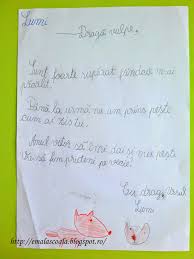 Lumi
Dragă vulpe,
Sunt foarte supărat fiindcă m-ai
păcălit.
Până la urmă ne-am prins pești
cum ai zis tu.
Anul viitor să îmi dai și mie pești
Cu drag, Ursul
Lumi
http://emalascoala.blogspot.ro/